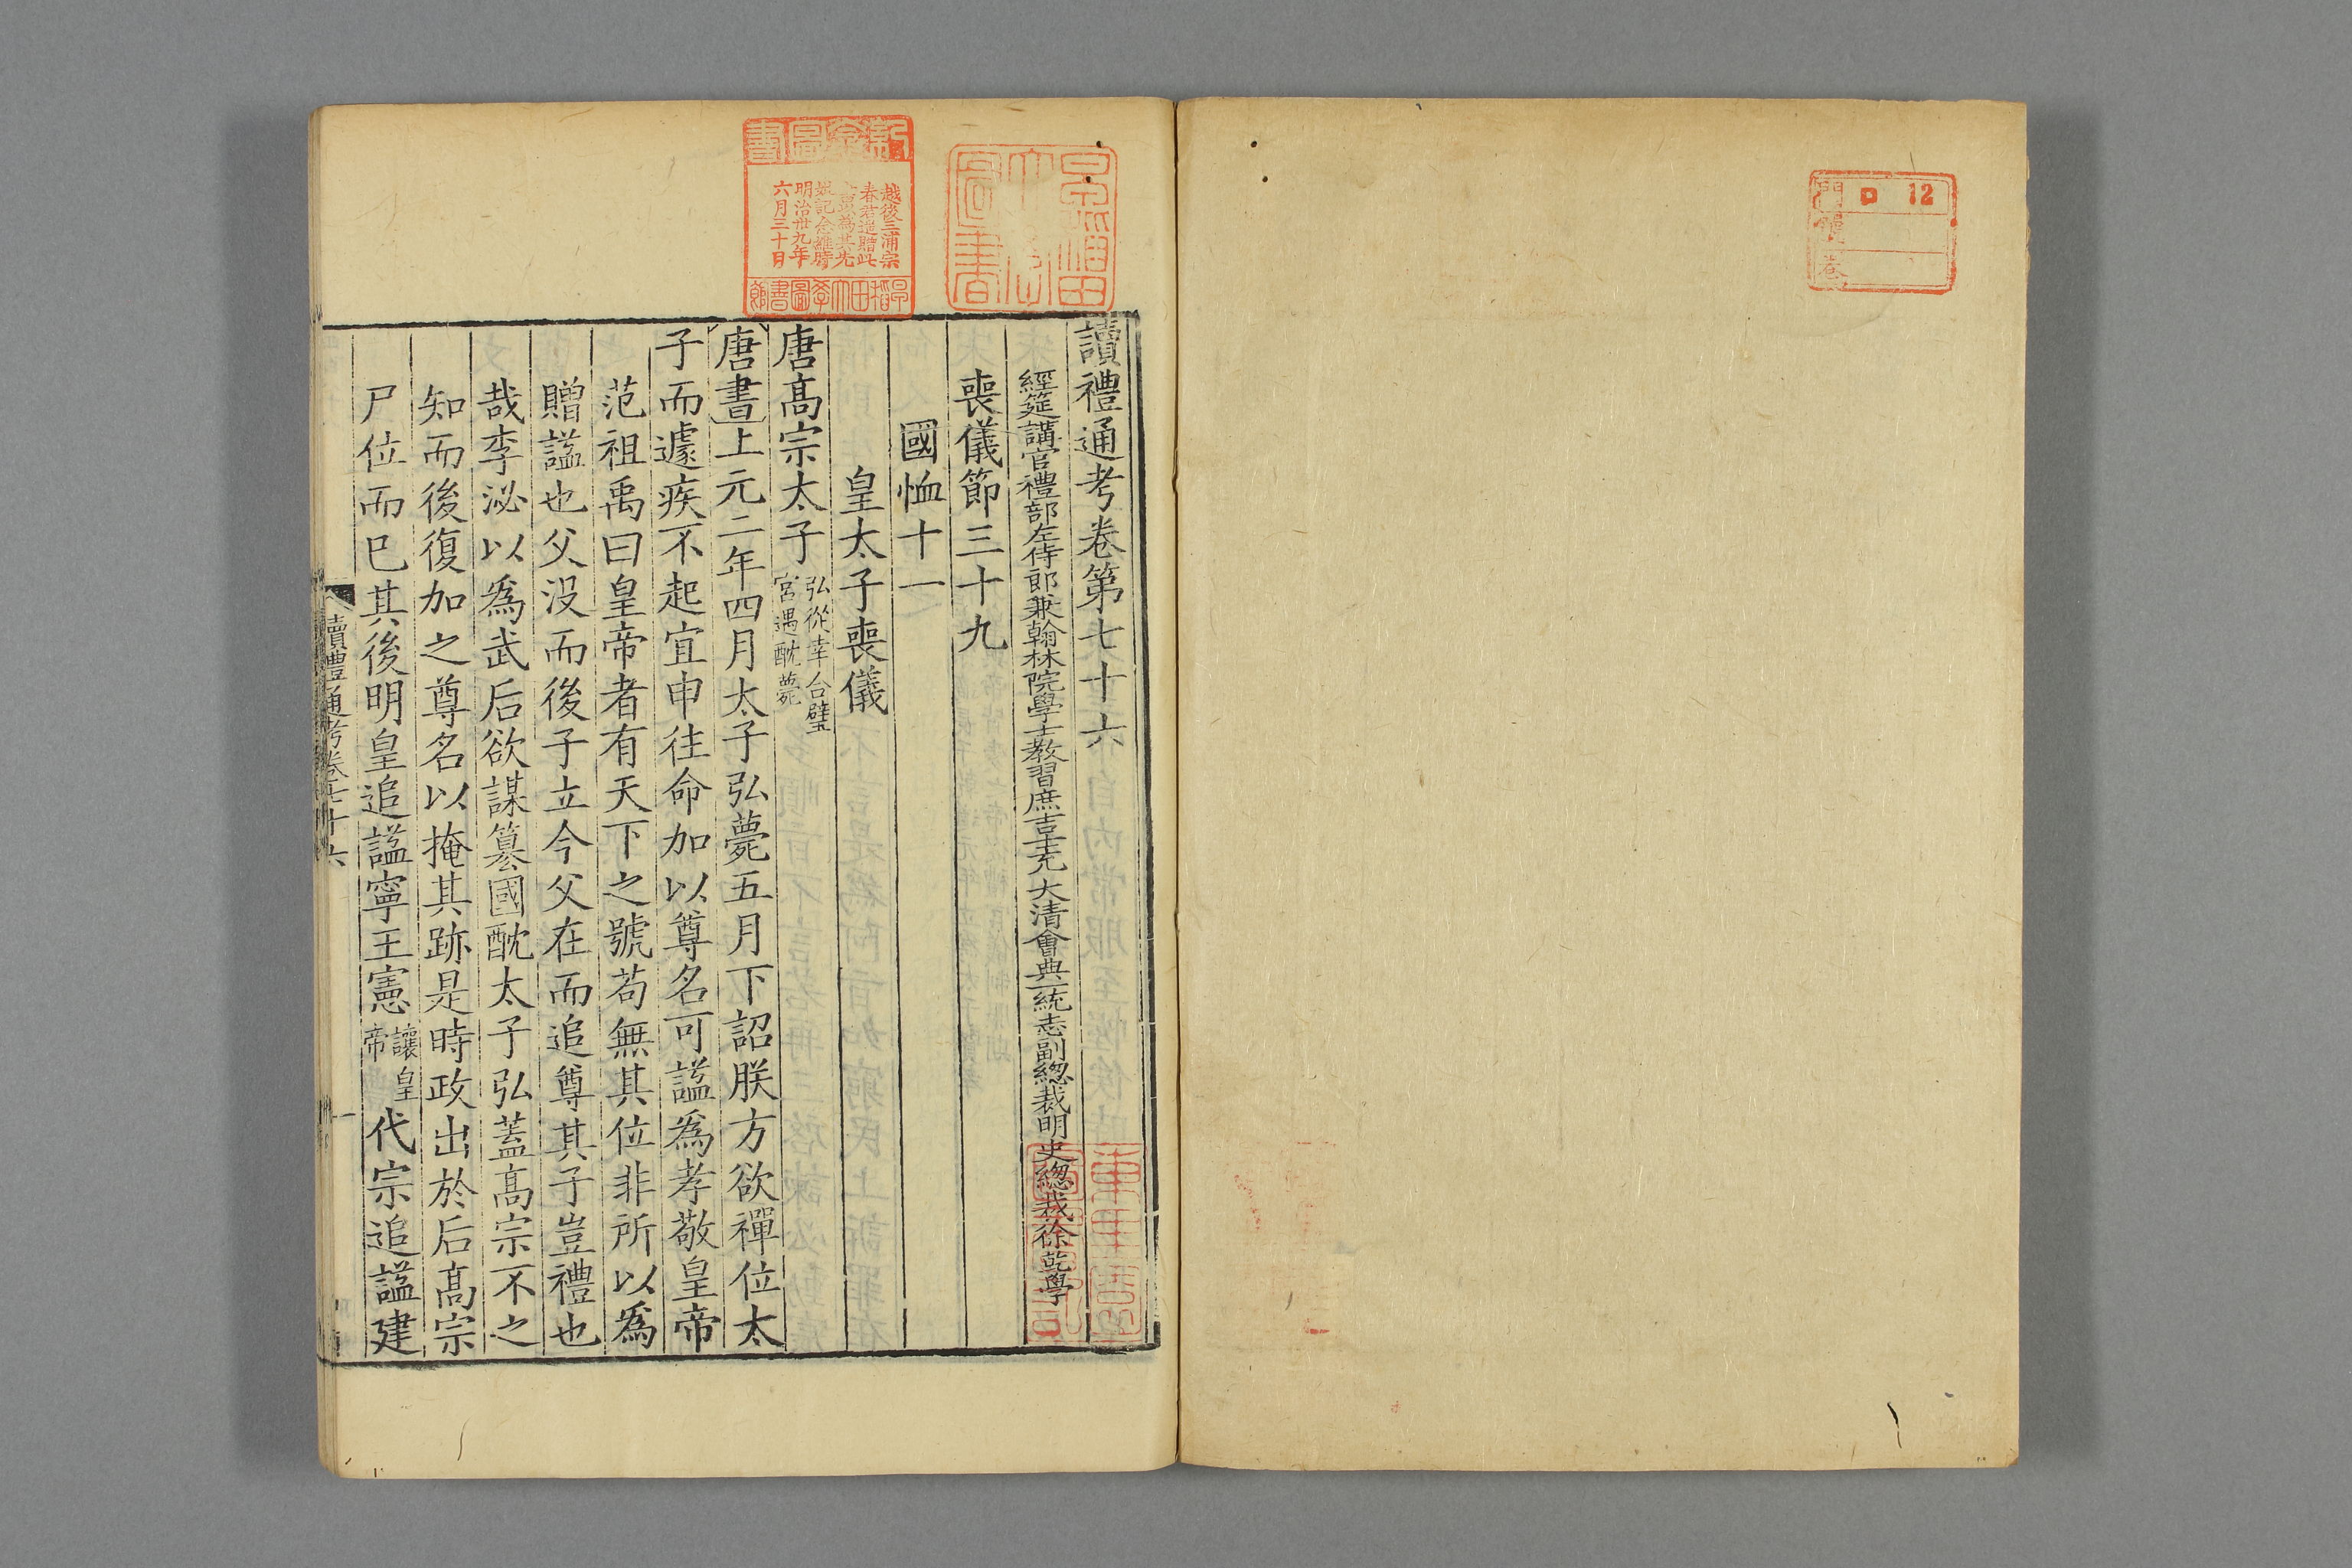 門 ロ 12
號
卷
讀禮通考卷第七十六
經筵講官禮部左侍郎兼翰林院學士教習庶吉士充 大清會典一統志副總裁明史總裁徐乾學
喪儀節三十九
國恤十一
皇太子喪儀
唐高宗太子弘從幸合璧
宮遇酖薨
唐書上元二年四月太子弘薨五月下詔朕方欲禪位太
子而遽疾不起宜申往命加以尊名可諡爲孝敬皇帝
范祖禹曰皇帝者有天下之號苟無其位非所以爲
贈諡也父沒而後子立今父在而追尊其子豈禮也
哉李泌以爲武后欲謀篡國酖太子弘蓋高宗不之
知而後復加之尊名以掩其跡是時政出於后高宗
尸位而已其後明皇追諡寧王憲讓皇
帝代宗追諡建
讀禮通考卷七十六
一
新倉圖書
越後三浦宗
春若造贈此
書爲其先
娘記念維時
明治卅九年
六月三十日
早稻田大學圖書館
早稻田大學圖書